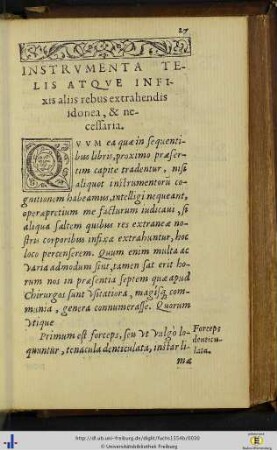 27
INSTRVMENTA TE-
LIS ATQVE INFI-
xis aliis rebus extrahendis
idonea, & ne-
cessaria.
QVVM ea quæ in sequenti-
bus libris, proximo præser-
tim capite tradentur, nisi
aliquot instrumentorū co-
gnitionem habeamus, intelligi nequeant,
operæpretium me facturum iudicaui, si
aliqua saltem quibus res extraneæ no-
stris corporibus infixæ extrahuntur, hoc
loco percenserem. Quum enim multa ac
varia admodum sint, tamen sat erit ho-
rum nos in præsentia septem quæ apud
Chirurgos sunt vsitatiora, magisq́; com-
munia, genera connumerasse. Quorum
vtique
Primum est forceps, seu vt vulgo lo-
quuntur, tenacula denticulata, instar li-
mæ
Forceps
denticu-
lata.
http://dl.ub.uni-freiburg.de/diglit/fuchs1554b/0039
© Universitätsbibliothek Freiburg